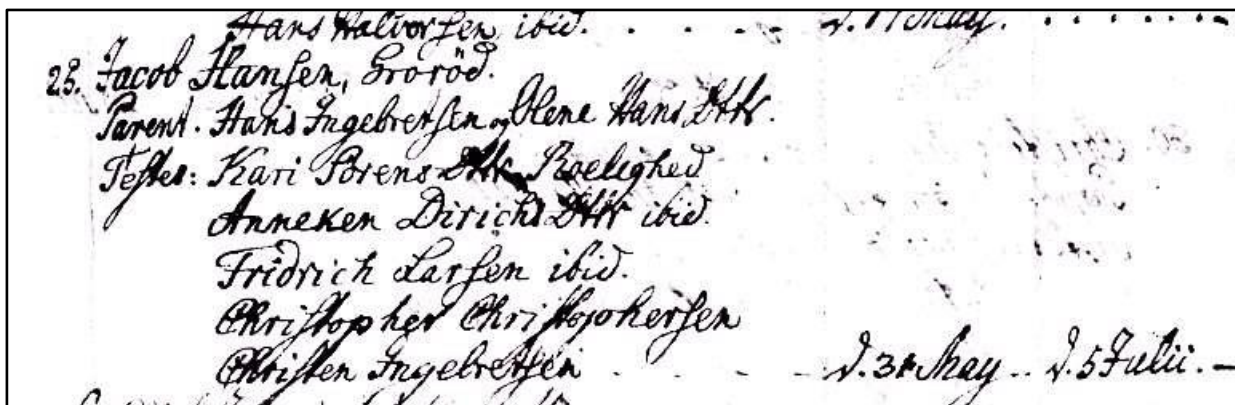 Hans Halvorsen ibid. . . . . d. 17 May. . . . . . .
25. Jacob Hansen, Groröd.
Parent. Hans Ingebretsen og Olene Hans Dttr.
Testes: Kari Sörens Dttr Roelighed
Anneken Dirichs Dttr ibid.
Fridrich Larsen ibid.
Christopher Christophersen
Christen Ingebretsen . . . . d. 31 May . . d. 5 Julii. –